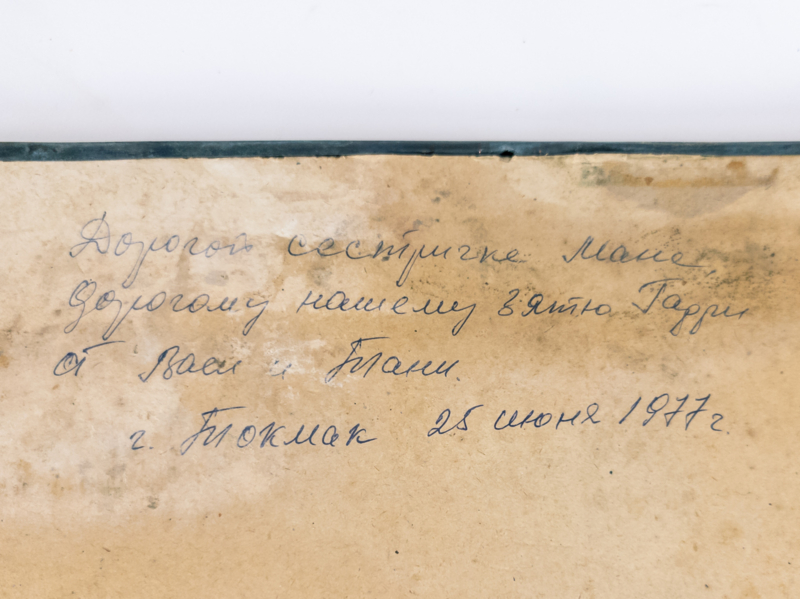 Дорогой сестричке Мане,
дорогому нашему зятю Гадри
от Васи и Тани.
г. Токмак 25 июня 1977 г.